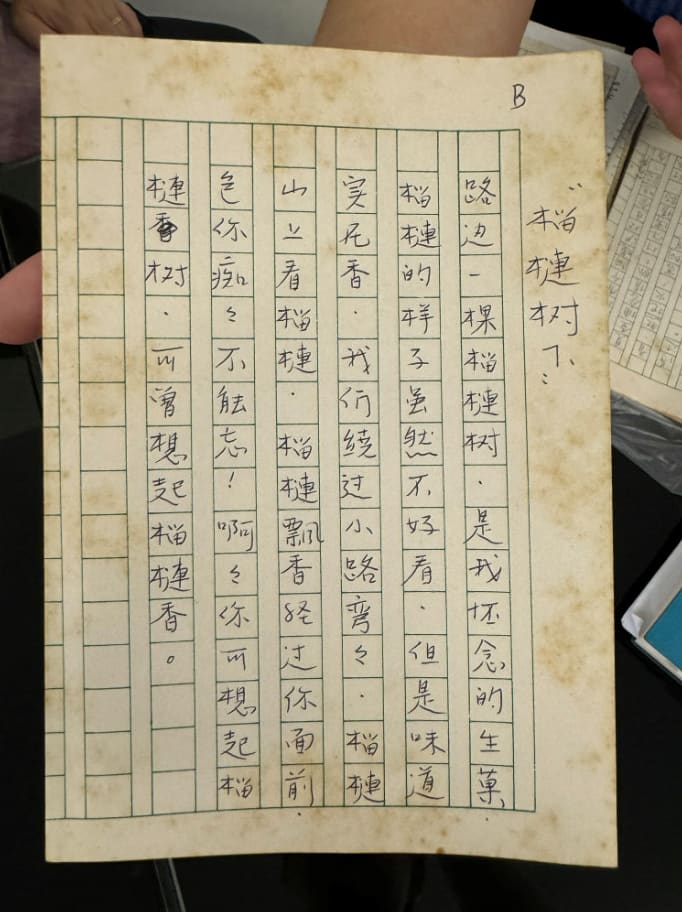 B
"榴槤树下"
路边一棵榴槤树·是我怀念的生菓·
榴槤的样子虽然不好看·但是味道
实在香·我们繞过小路弯々·榴槤
山上看榴槤·榴槤飄香经过你面前·
色你痴々不能忘！啊々你可想起榴
槤树·可曾想起榴槤香。